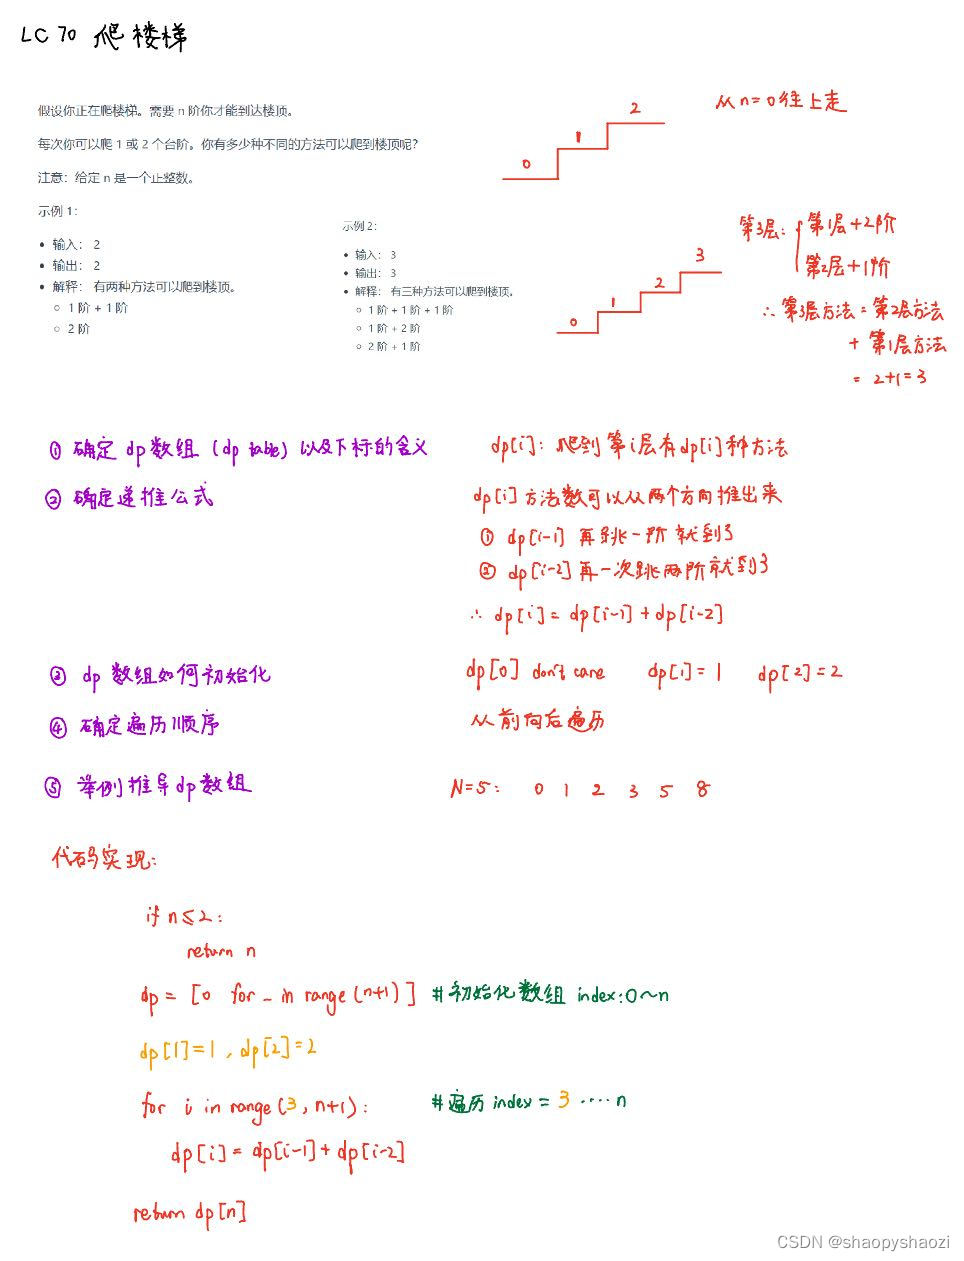 LC 70 爬楼梯
假设你正在爬楼梯。需要 n 阶你才能到达楼顶。
每次你可以爬 1 或 2 个台阶。你有多少种不同的方法可以爬到楼顶呢?
注意：给定 n 是一个正整数。
示例 1：
• 输入： 2
• 输出： 2
• 解释： 有两种方法可以爬到楼顶。
○ 1 阶 + 1 阶
○ 2 阶
示例 2：
• 输入： 3
• 输出： 3
• 解释： 有三种方法可以爬到楼顶。
○ 1 阶 + 1 阶 + 1 阶
○ 1 阶 + 2 阶
○ 2 阶 + 1 阶
0 1 2
从n=0往上走
0 1 2 3
第3层: { 第1层+2阶
第2层+1阶
∴ 第3层方法 = 第2层方法
+ 第1层方法
= 2+1=3
① 确定 dp 数组 (dp table) 以及下标的含义
dp[i]: 爬到第i层有dp[i]种方法
② 确定递推公式
dp[i]方法数可以从两个方向推出来
① dp[i-1] 再跳一阶就到了
② dp[i-2]再一次跳两阶就到了
∴ dp[i] = dp[i-1] + dp[i-2]
③ dp 数组如何初始化
dp[0] don't care dp[1]=1 dp[2]=2
④ 确定遍历顺序
从前向后遍历
⑤ 举例推导dp数组
N=5: 0 1 2 3 5 8
代码实现:
if n≤2:
return n
dp = [0 for _ in range(n+1)] #初始化数组 index:0~n
dp[1]=1, dp[2]=2
for i in range(3, n+1): #遍历 index = 3 ····n
dp[i] = dp[i-1] + dp[i-2]
return dp[n]
CSDN @shaopyshaozi